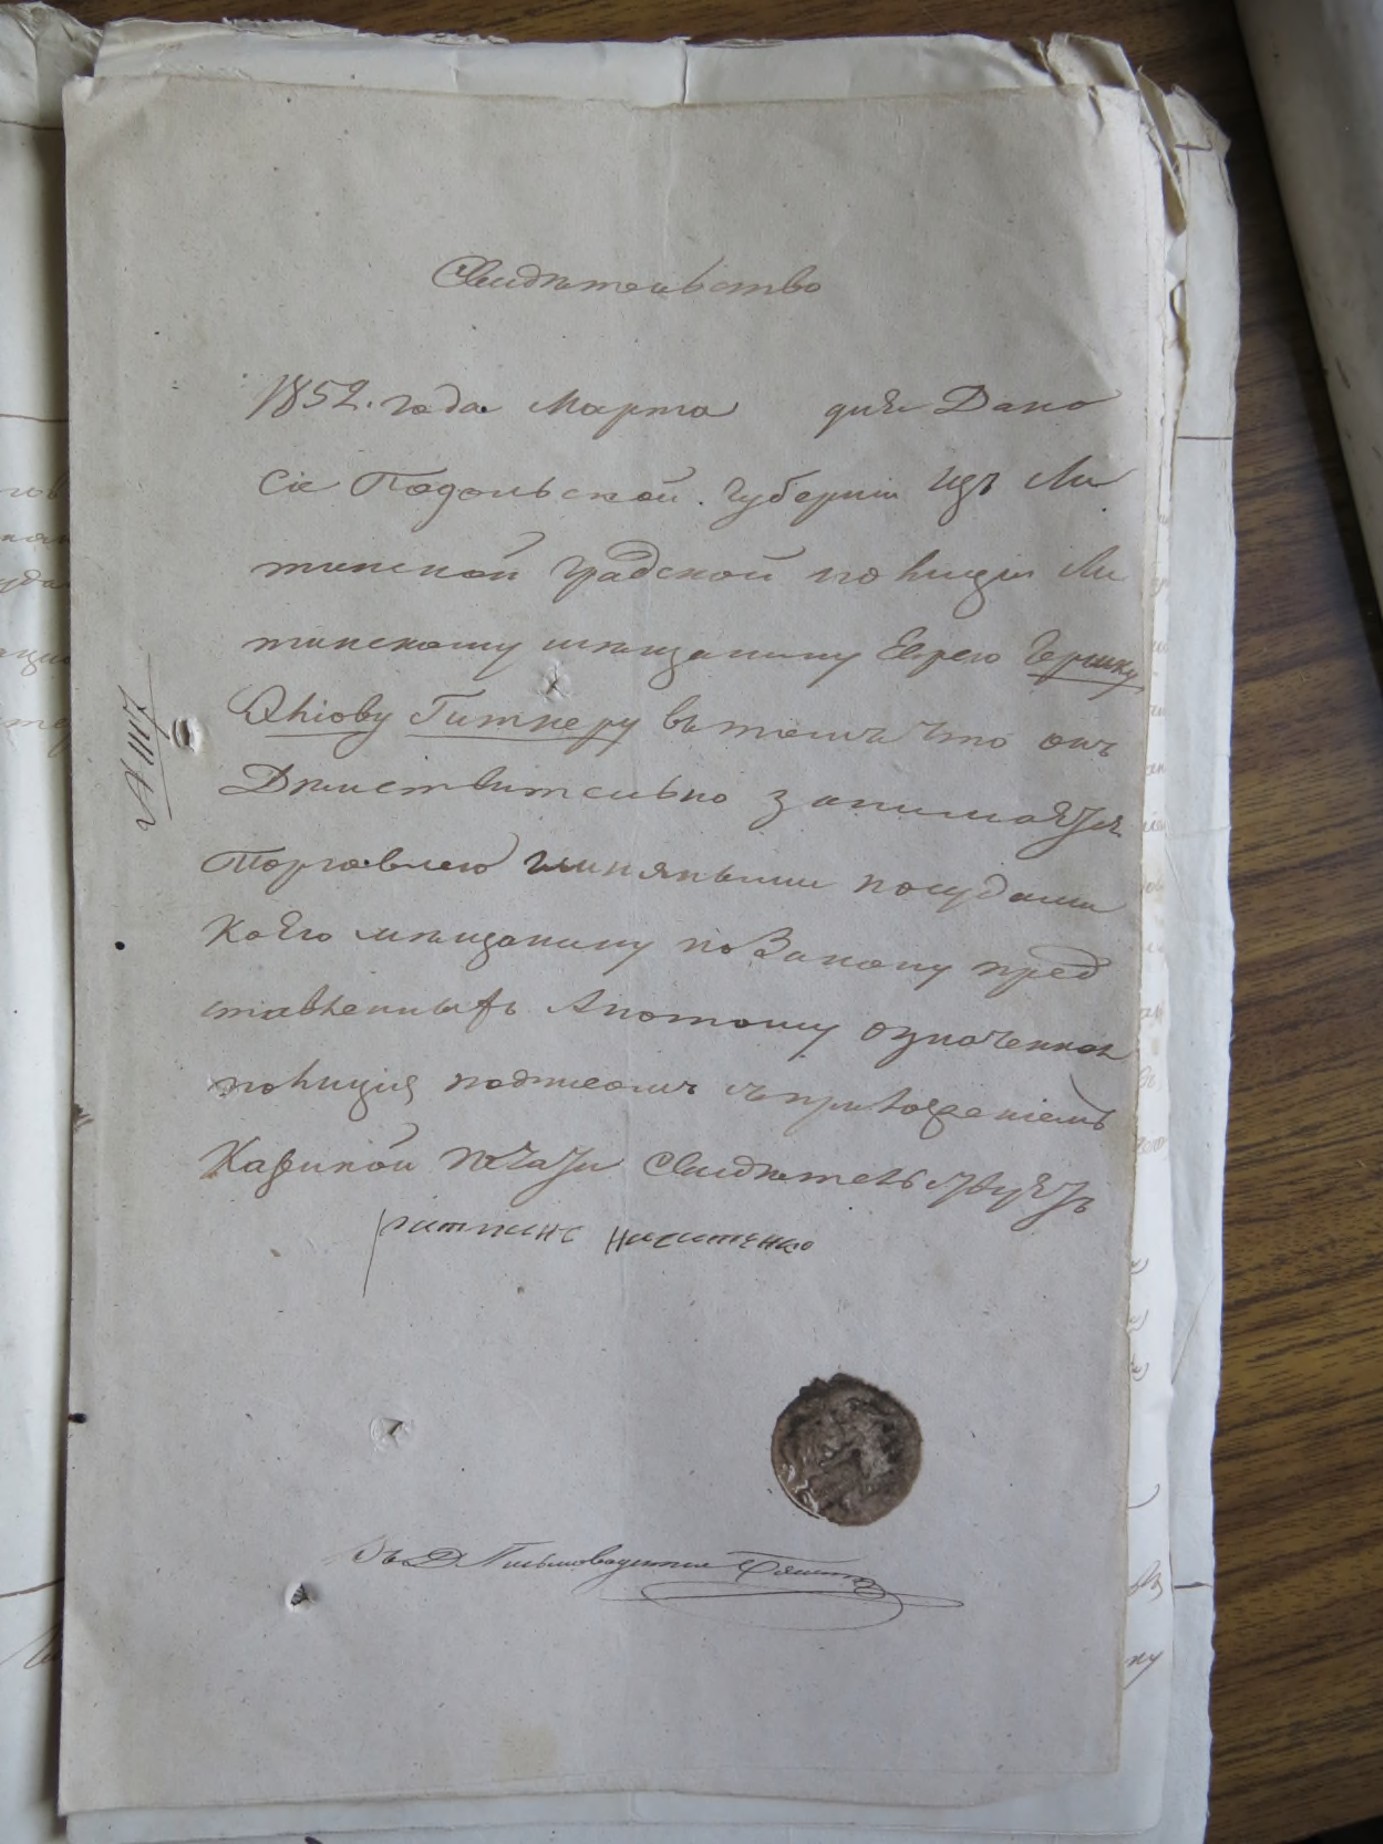 Свидѣтельство
1852. года Марта дня Дано
сіе Подольской Губерніи изъ Ли
тинской Градской полиціи Ли
тинскому мѣщанину Еврею Гершку
Гитнеру въ томъ что онъ
Дѣйствительно занимаетця
торговлею глиняными посудами
коего мѣщанину по Закону пред
ставленныхъ А потому означенная
полиція подписомъ съ приложеніемъ
Казенной печати Свидѣтельствуетъ
Ратманъ Никитенко
Письмоводителя
№ 1117